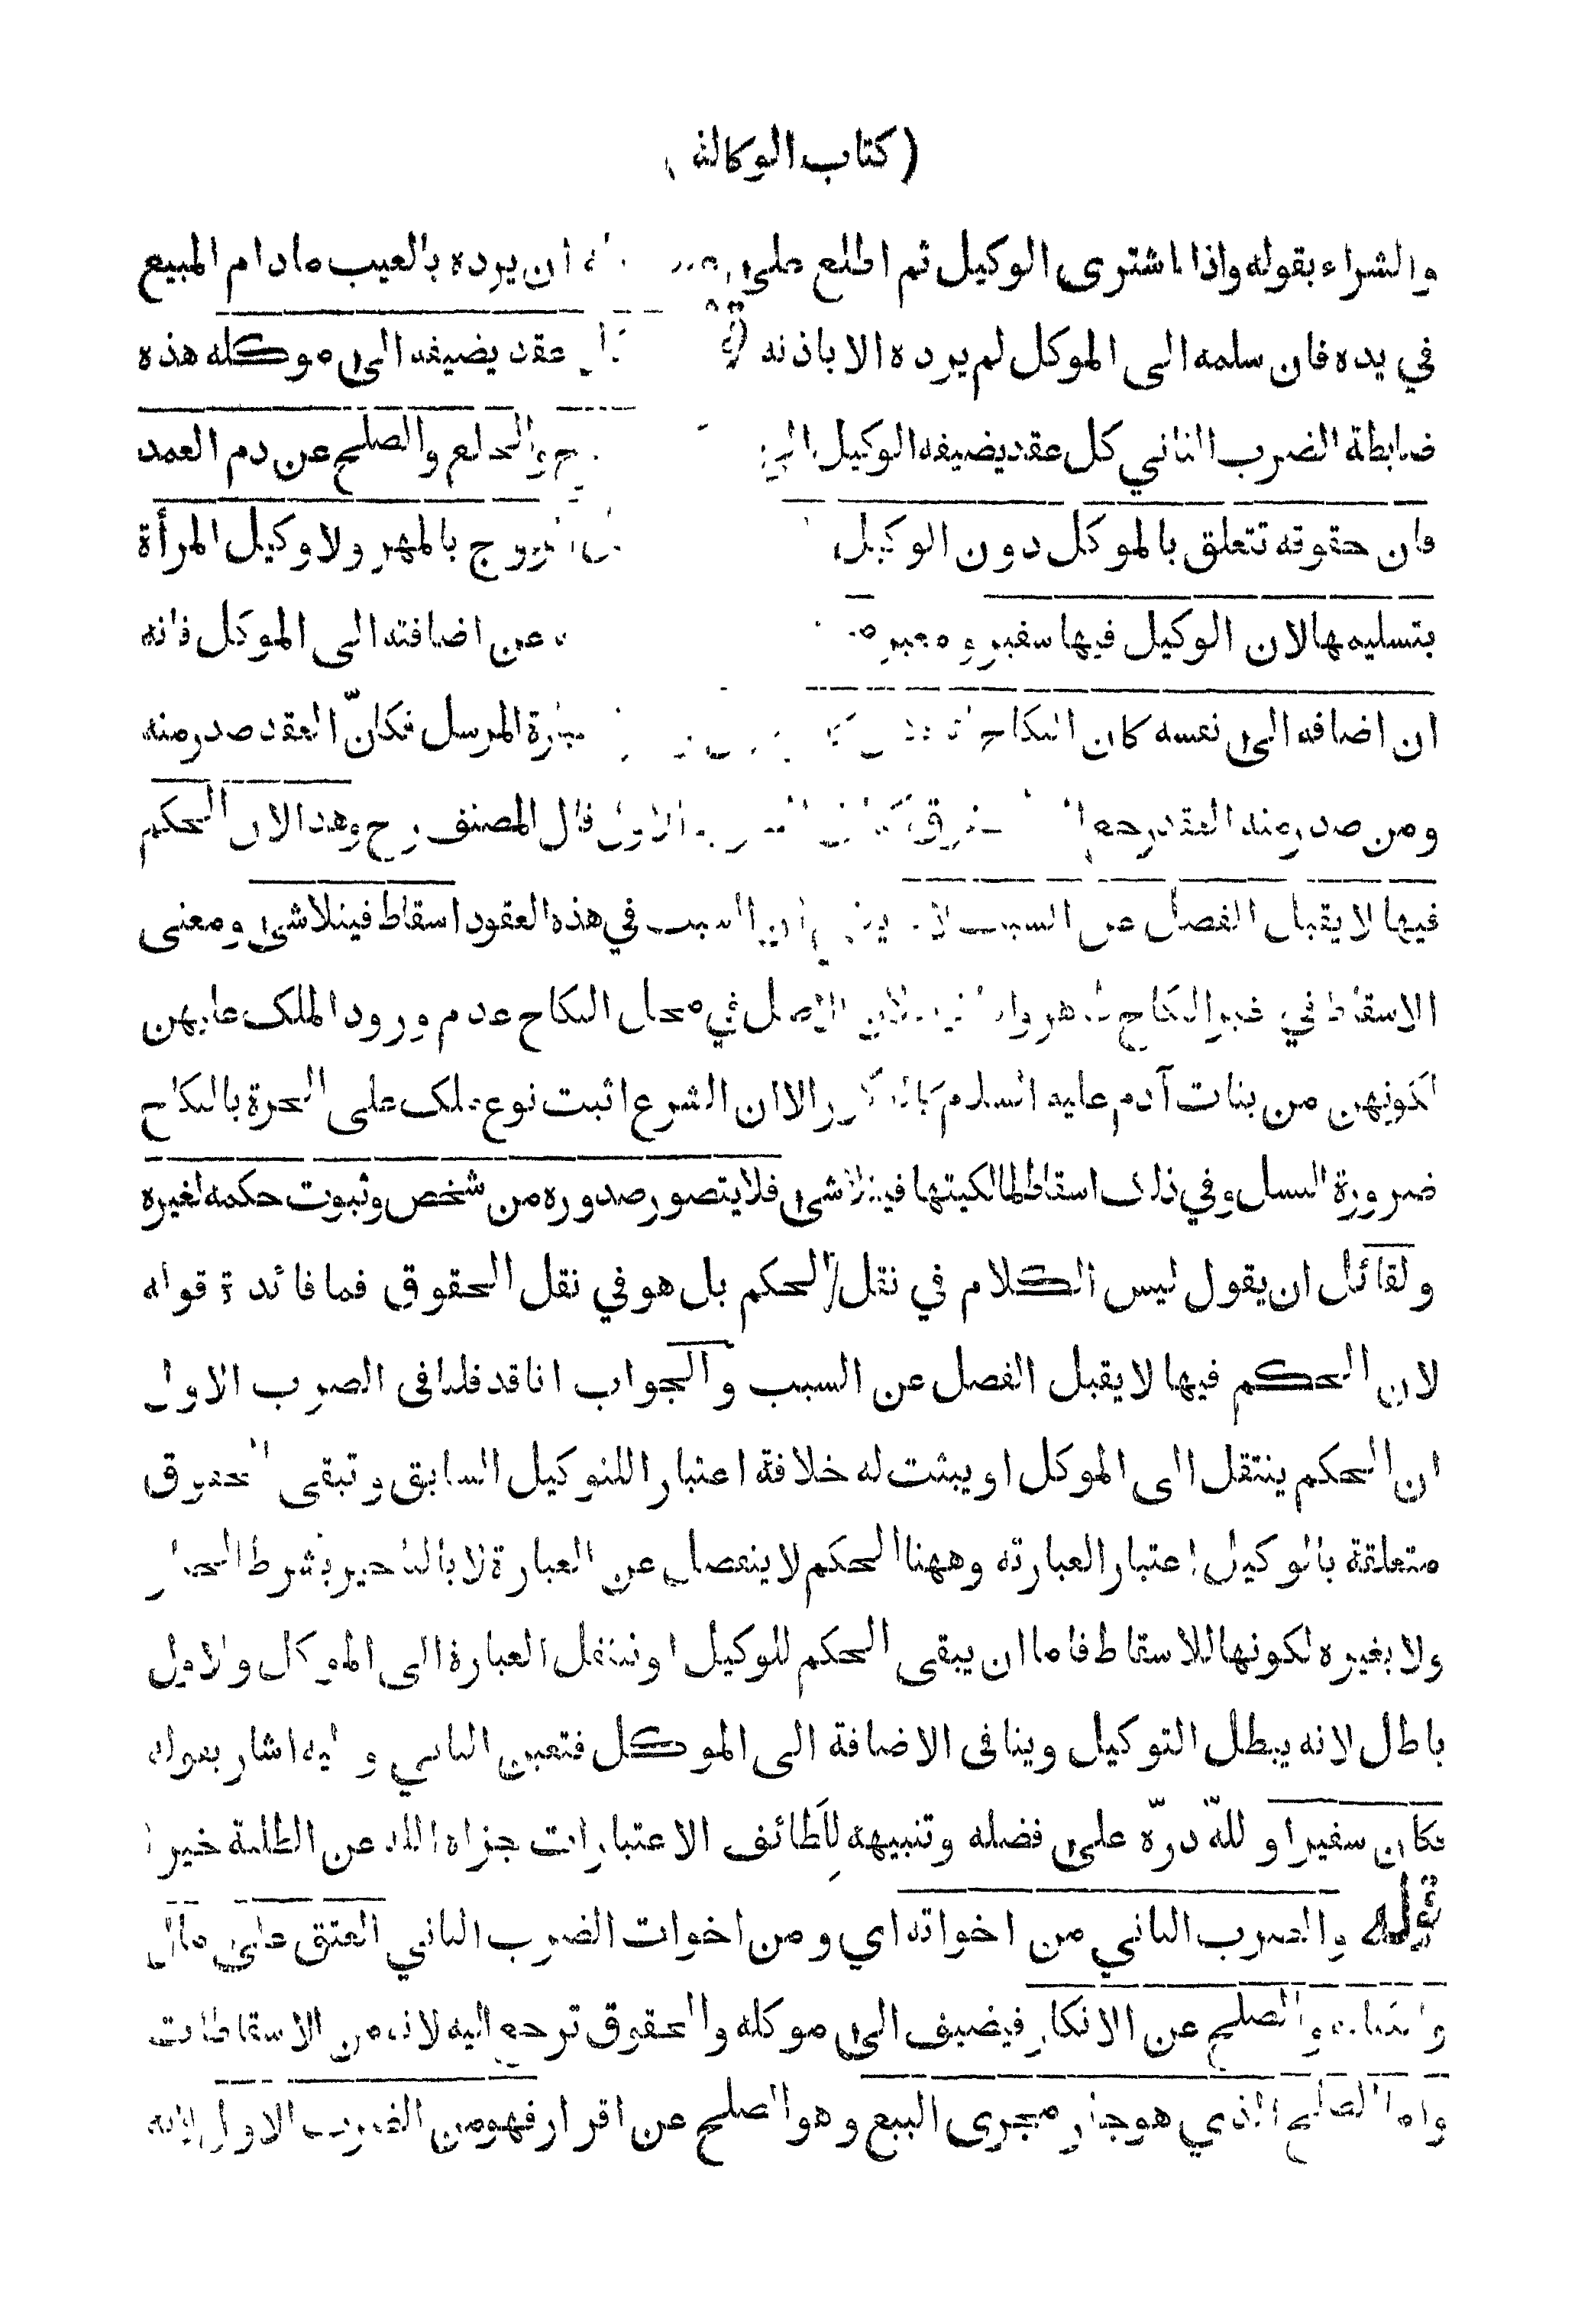 (كتاب الوكالة)
والشراء بقوله واذا اشترى الوكيل ثم اطلع على ان يرده بالعيب مادام المبيع
في يده فان سلمه الى الموكل لم يرده الا باذنه عقد يضيفه الى موكله هذه
ضابطة الضرب الثاني كل عقد يضيفه الوكيل والخلع والصلح عن دم العمد
فان حقوقه تتعلق بالموكل دون الوكيل الزوج بالمهر ولا وكيل المرأة
بتسليمها لان الوكيل فيها سفير ومعبر عن اضافته الى الموكل فانه
ان اضافه الى نفسه كان النكاح عبارة المرسل فكانّ العقد صدر منه
ومن صدر منه العقد رجع الاول قال المصنف رح وهذا لان الحكم
فيها لا يقبل الفصل عن السبب لان السبب في هذه العقود اسقاط فيتلاشى ومعنى
الاسقاط في غير النكاح ظاهر واما فيه فلان الاصل في محل النكاح عدم ورود الملك عليهن
لكونهن من بنات آدم عليه السلام الا ان الشرع اثبت نوع ملك على الحرة بالنكاح
ضرورة النسل وفي ذلك اسقاط لمالكيتها فيتلاشى فلا يتصور صدوره من شخص وثبوت حكمه لغيره
ولقائل ان يقول ليس الكلام في نقل الحكم بل هو في نقل الحقوق فما فائدة قوله
لان الحكم فيها لا يقبل الفصل عن السبب والجواب انا قد قلنا فى الضرب الاول
ان الحكم ينتقل الى الموكل او يثبت له خلافة اعتبارا للتوكيل السابق وتبقى الحقوق
متعلقة بالوكيل اعتبارا لعبارته وههنا الحكم لا ينفصل عن العبارة لا بالتاخير بشرط الخيار
ولا بغيره لكونها للاسقاط فاما ان يبقى الحكم للوكيل او تنتقل العبارة الى الموكل والاول
باطل لانه يبطل التوكيل وينافى الاضافة الى الموكل فتعين الثاني واليه اشار بقوله
فكان سفيرا و للّه درّه على فضله وتنبيهه للطائف الاعتبارات جزاه الله عن الطلبة خيرا
قوله والضرب الثاني من اخواته اي ومن اخوات الضرب الثاني العتق على مال
والكتابة والصلح عن الانكار فيضيف الى موكله والحقوق ترجع اليه لانه من الاسقاطات
واما الصلح الذي هو جار مجرى البيع وهو الصلح عن اقرار فهو من الضرب الاول لانه